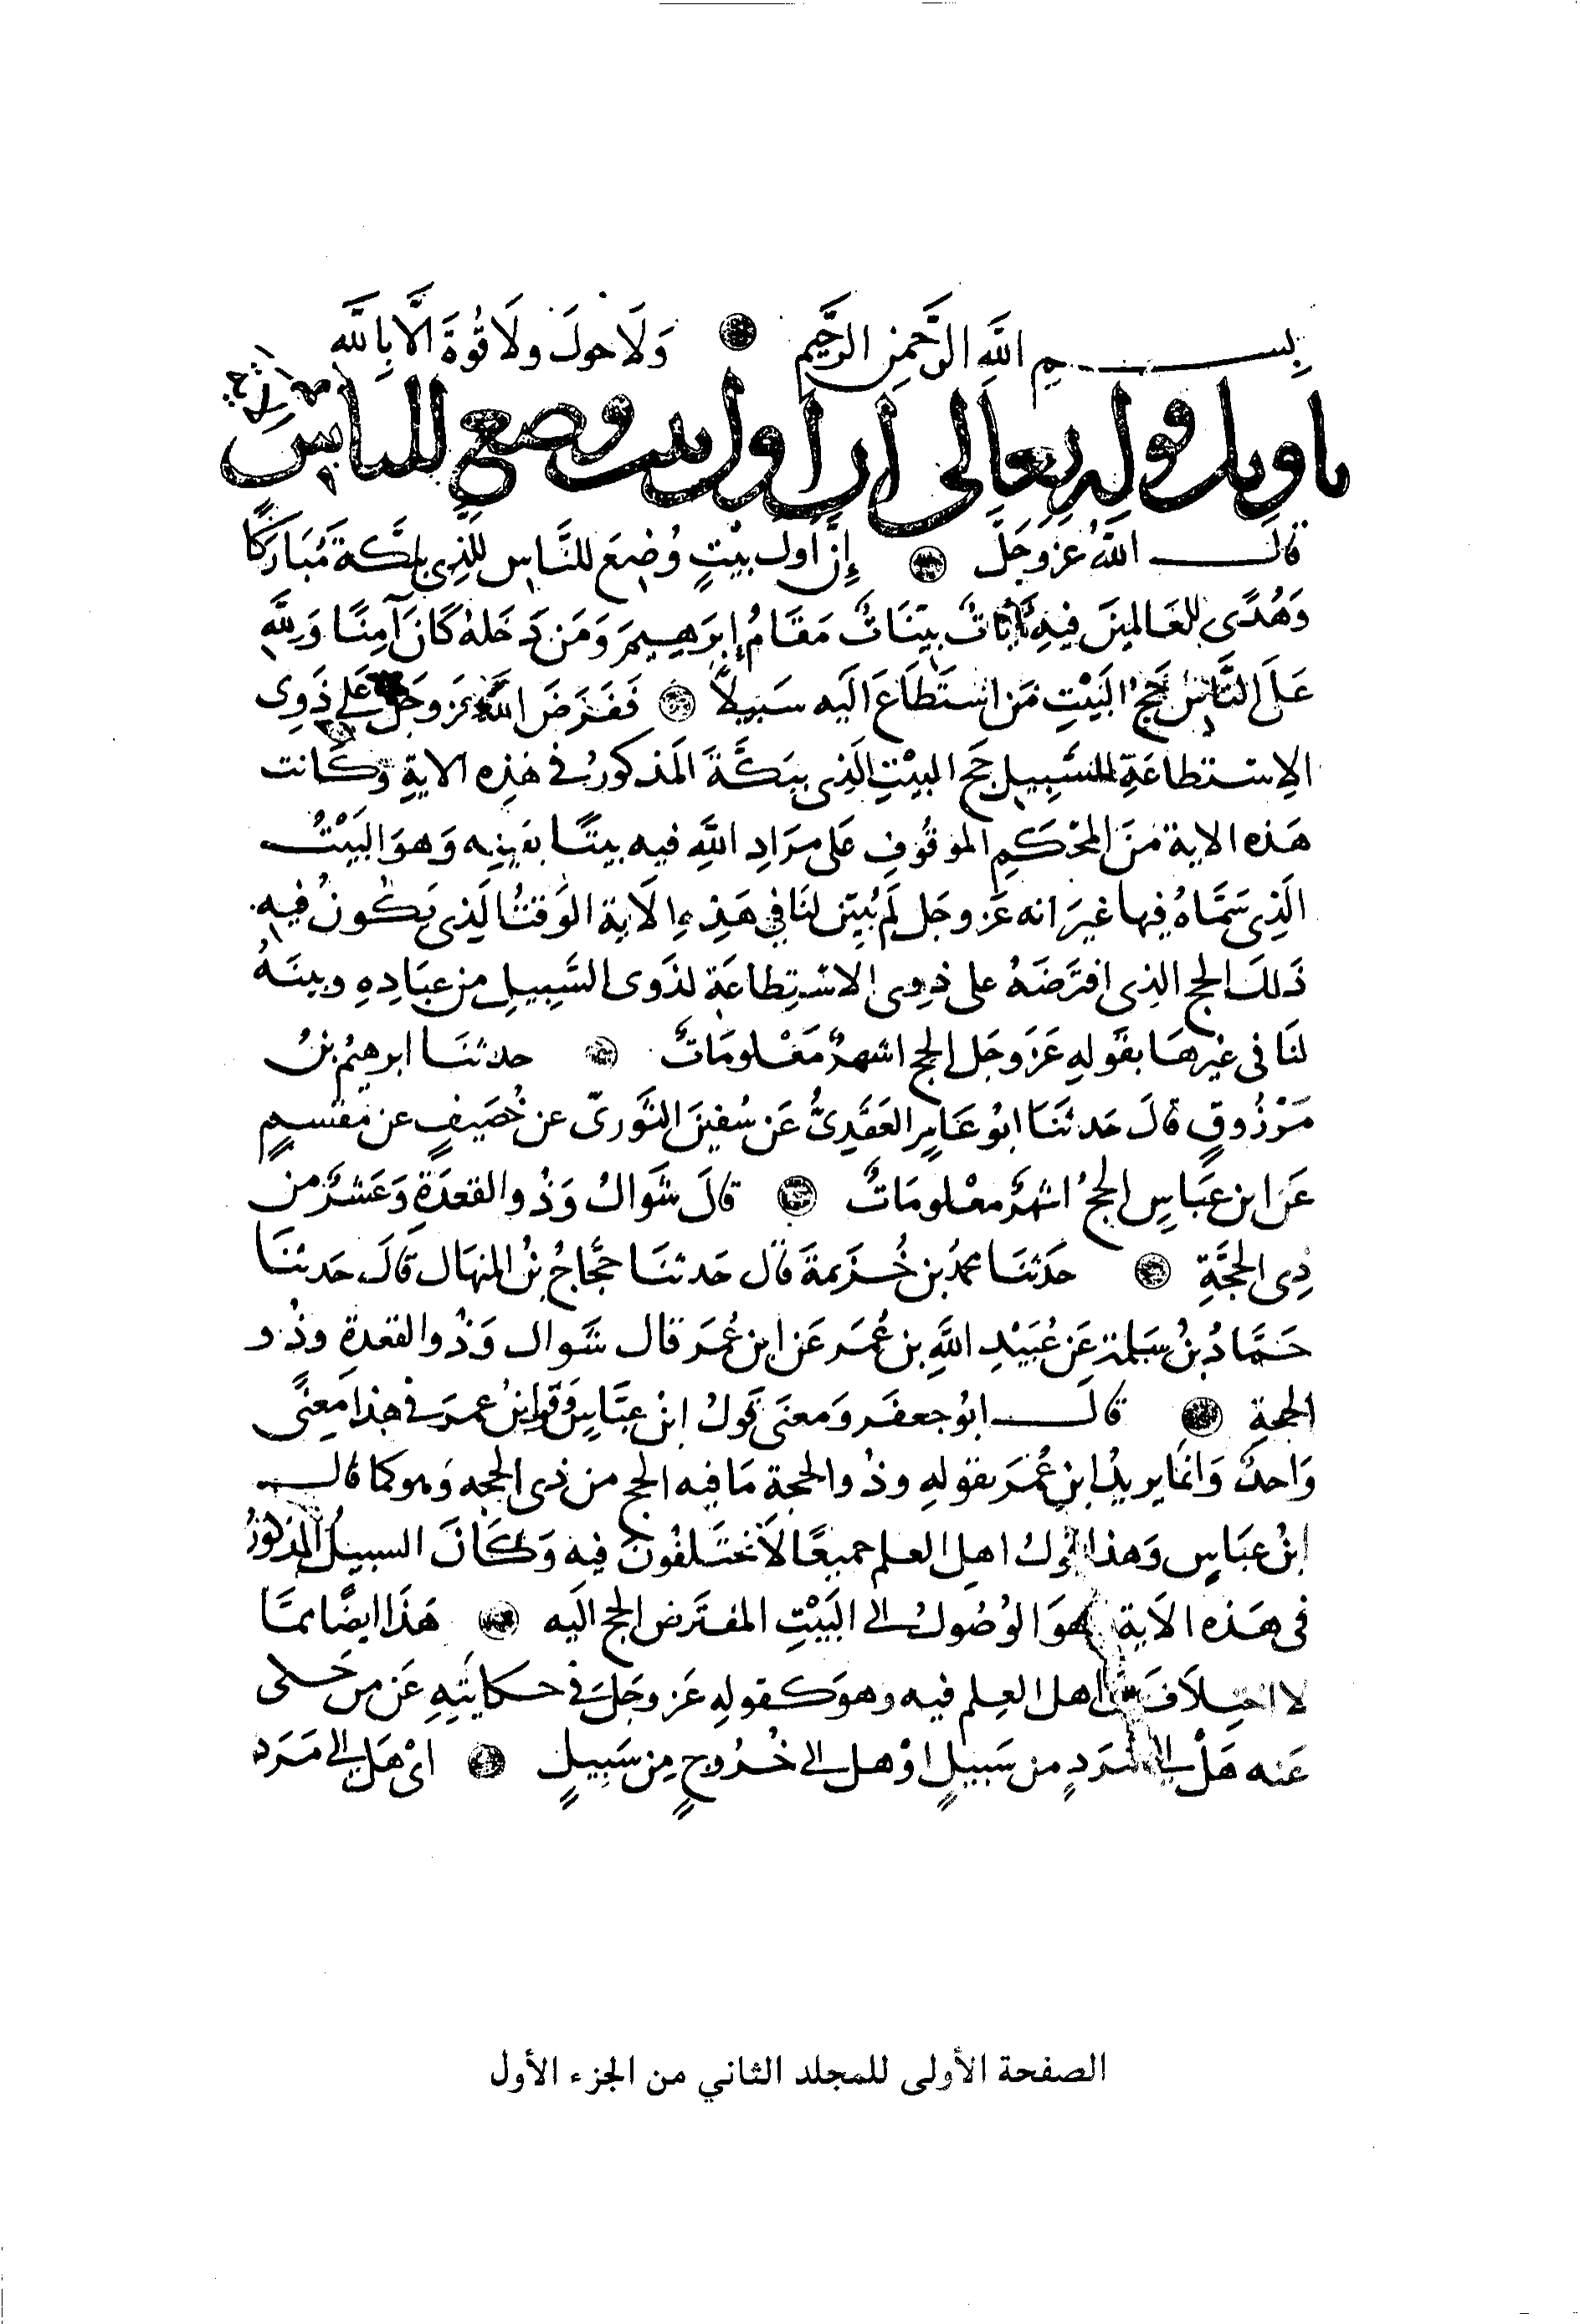 بسم الله الرحمن الرحيم ولا حول ولا قوة الا بالله
تاويل قوله تعالى ان اول بيت وضع للناس
قال الله عز وجل إِنَّ اول بيْتٍ وُضِعَ للنَّاسِ للَّذِي ببَكَّة مُبَارَكًا
وَهُدًى للعَالمينَ فيهِ آيَاتٌ بيّنَاتٌ مَقَامُ إبرَهِيمَ وَمَن دَخَلهُ كَانَ آمِنًا وَلِلَّهِ
عَلَى النَّاسِ حِجُّ البَيْتِ مَن اسْتَطَاعَ الَيه سَبيلاً فَفَرَضَ اللَّهُ عَز وجَل عَلى ذَوِى
الاِسْتطاعَةِ للسَّبِيلِ حَج البيْتِ الَذِى ببَكَّةَ المَذكورُ فى هَذِه الايةِ وَكَانت
هَذه الاية منَ المحْكَمِ الموقُوفِ عَلى مرَادِ اللَّهِ فيه بيتًا بعَينِه وَهوَ البَيْتُ
الَذِى سَمَّاهُ فيها غيرَ انه عَز وجَل لَم يُبَيّن لنَا فِي هَذِهِ الاَية الوَقتُ الَذِى يَكُونُ فيهِ
ذَلكَ الحج الذِى افترَضَهُ على ذوِى الاسْتِطاعَةِ لذَوى السَّبِيلِ من عبَادِهِ وبينَهُ
لنَا فى غيرِهَا بقَولهِ عَزَ وجَل الحج اشهرٌ مَعْلومَاتٌ حدثنَا ابرهيمُ بنُ
مَرْزُوقٍ قالَ حَدثنَا ابُو عَامِرٍ العَقَدِىُّ عَن سُفينَ الثَّورىّ عن خُصَيفٍ عن مقسمٍ
عَن ابن عَبَاسٍ الحجُ اشهرٌ معْلومَاتٌ قالَ شَوالُ وَذُو القعدَةِ وَعَشرٌ من
ذِى الحجَّةِ حَدثنَا محمدُ بن خُزَيمةَ قال حَدثنَا حَجَّاجُ بنُ المنهَال قالَ حَدثنَا
حَمَّادُ بنُ سَلمة عَن عُبَيْدِ اللَّهِ بن عُمَر عَن ابن عُمَر قال شَوال وَذُو القعدةِ وذُو
الحجةِ قال ابُو جعفَر وَمعنَى قولُ ابنُ عبَّاسٍ وَقولِ ابنُ عمرَ فى هذا مَعنًى
وَاحدٌ وَانمَا يريدُ ابن عُمَرَ بقولهِ وذُو الحجة مَا فيه الحج من ذى الحجه وَهو كما قال
ابنُ عبَاسٍ وَهذا قولُ اهل العلم جميعًا لاَ يختَلفُونَ فيه وَكَانَ السبيلُ المذكورُ
فى هَذه الاَية هوَ الوُصُولُ الى البَيْتِ المفترَض الحج اليَه هَذَا ايضًا ممَّا
لا اختلاَفَ بين اهل العِلم فيه وهوَ كقولِهِ عَز وجَل فى حكايتِهِ عَن من حَكى
عَنه هَلْ الى مَرَدٍ من سَبيلٍ اوْ هل الى خُرُوجٍ مِن سَبِيلٍ اىْ هَل الى مَرَد
الصفحة الأولى للمجلد الثاني من الجزء الأول